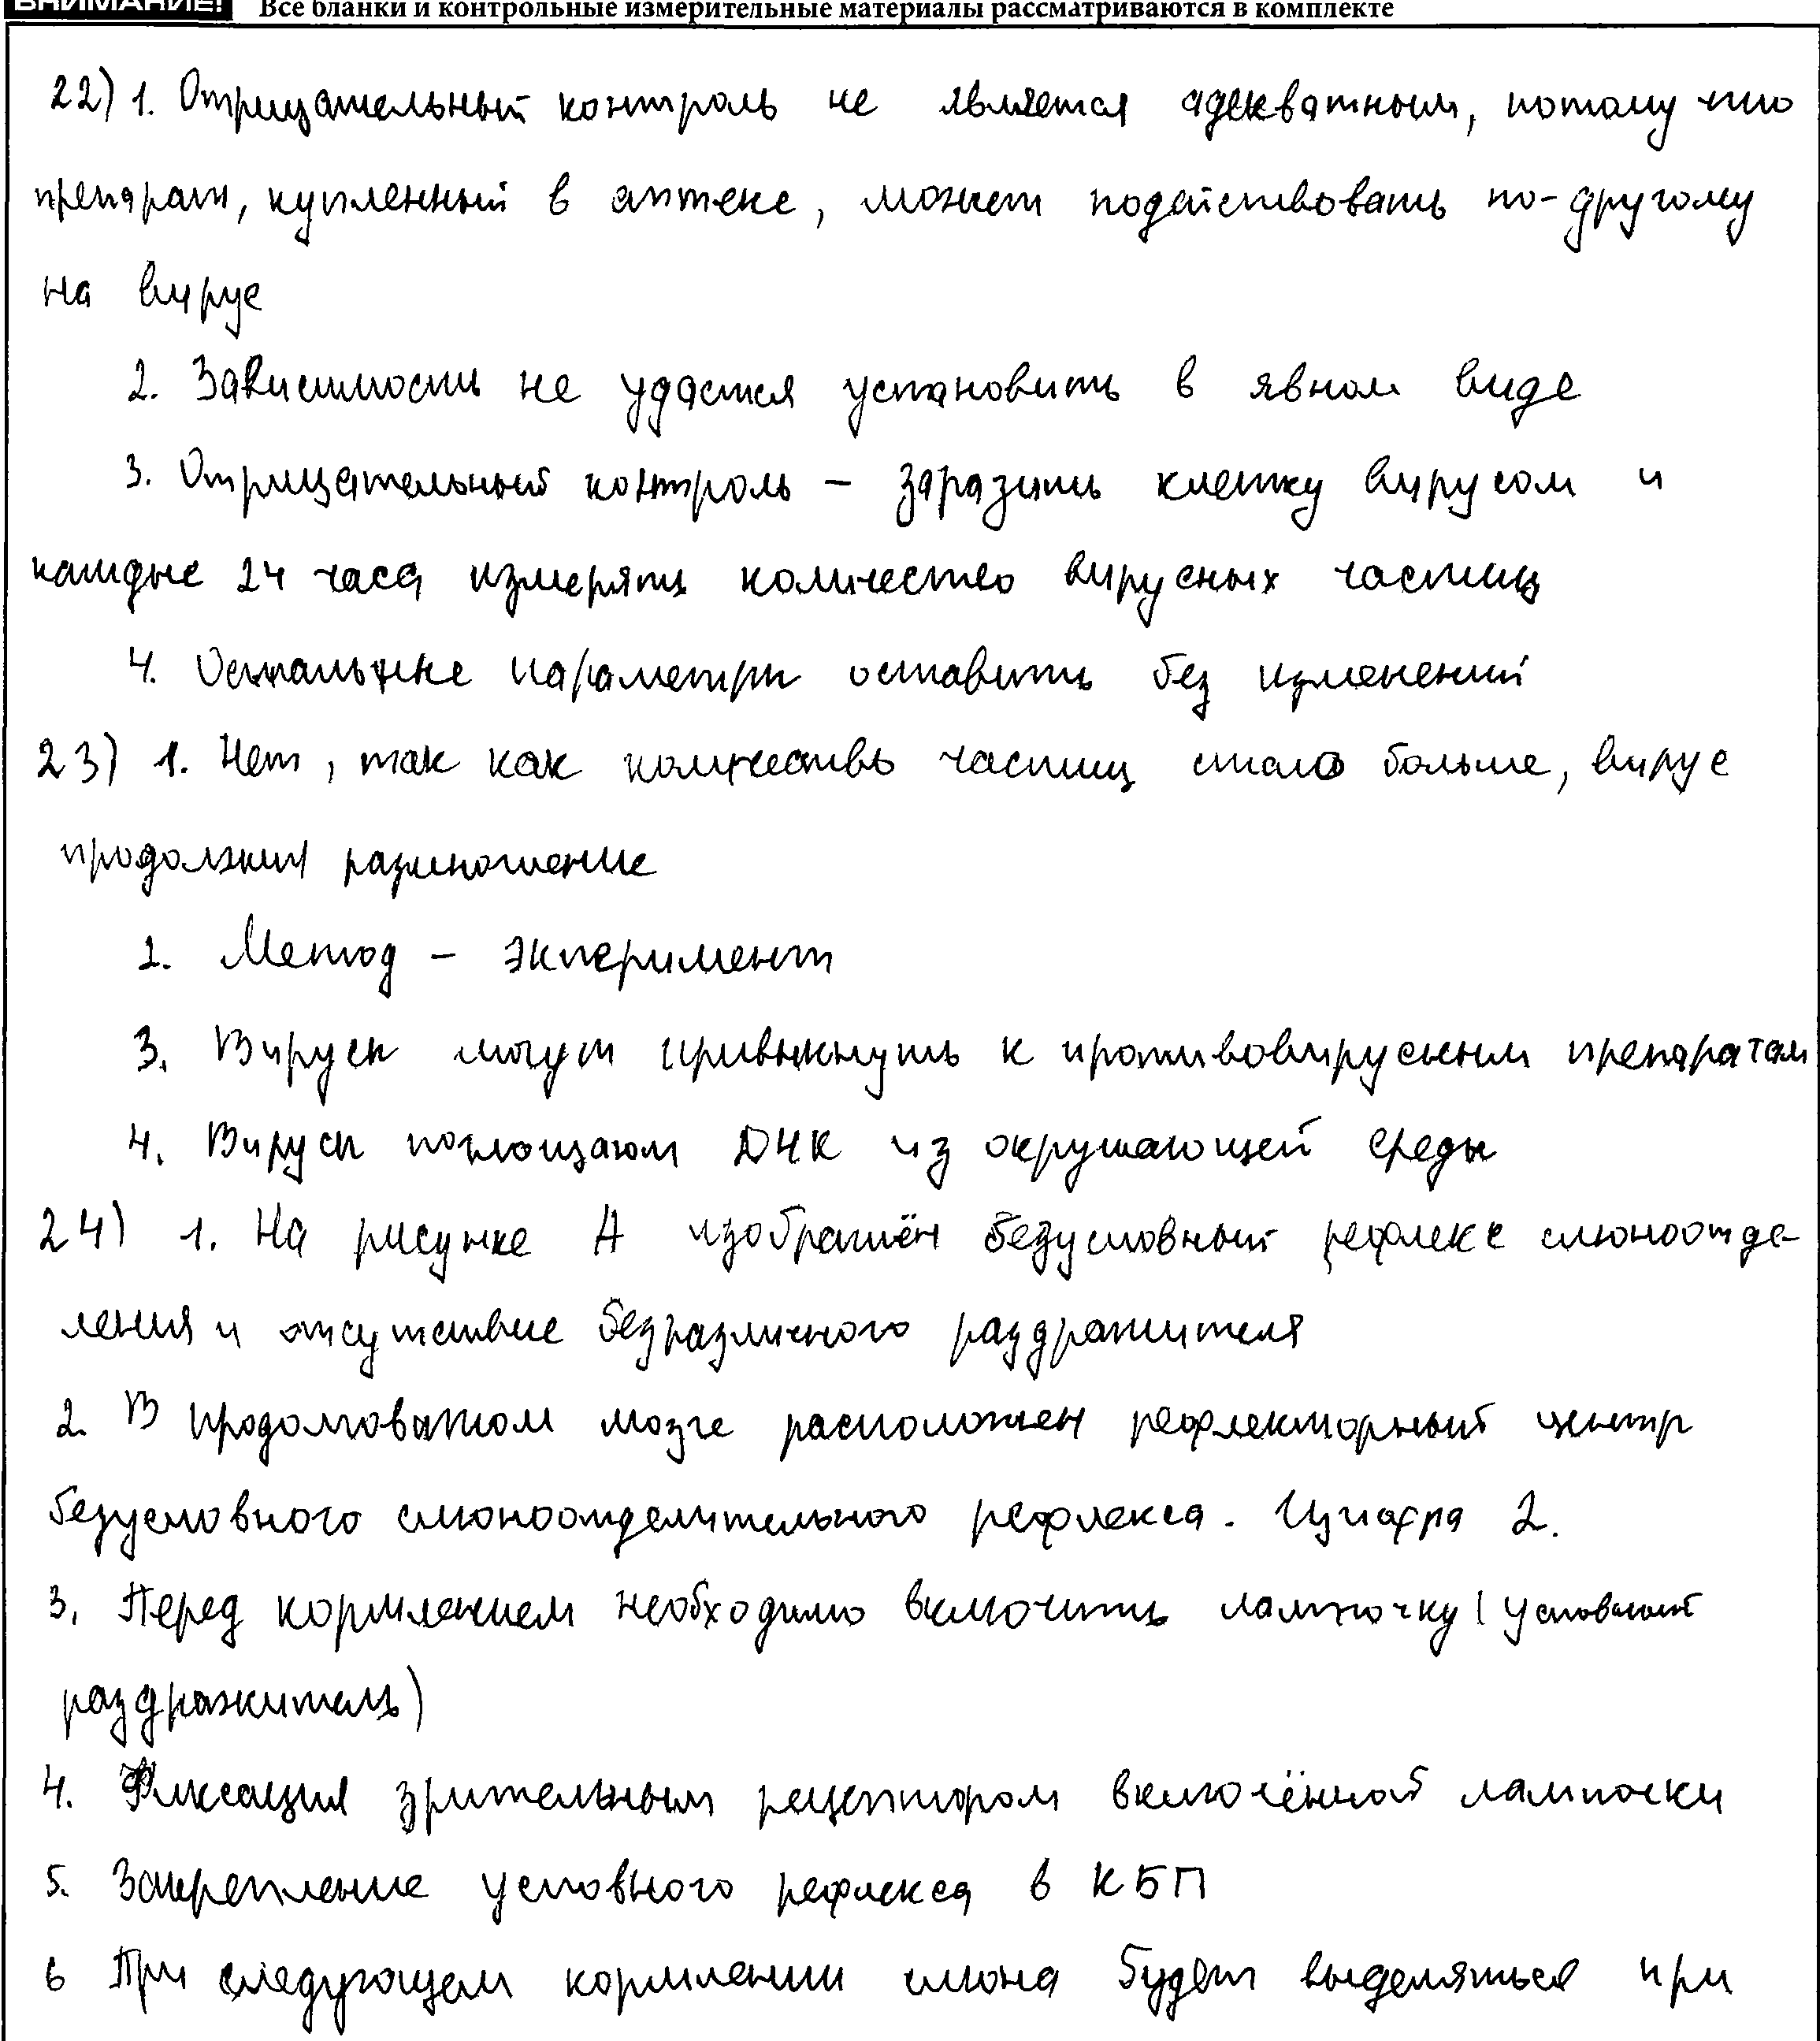 ВНИМАНИЕ! Все бланки и контрольные измерительные материалы рассматриваются в комплекте
22) 1. Отрицательный контроль не является адекватным, потому что
препарат, купленный в аптеке, может подействовать по-другому
на вирус
2. Зависимость не удастся установить в явном виде
3. Отрицательный контроль – заразить клетку вирусом и
каждые 24 часа измерять количество вирусных частиц
4. Остальные параметры оставить без изменений
23) 1. Нет, так как количество частиц стало больше, вирус
продолжил размножение
2. Метод – эксперимент
3. Вирусы могут привыкнуть к противовирусным препаратам
4. Вирусы поглощают ДНК из окружающей среды
24) 1. На рисунке А изображён безусловный рефлекс слюноотде-
ления и отсутствие безразличного раздражителя
2. В продолговатом мозге расположен рефлекторный центр
безусловного слюноотделительного рефлекса. Цифра 2.
3. Перед кормлением необходимо включить лампочку (условный
раздражитель)
4. Фиксация зрительным рецептором включённой лампочки
5. Закрепление условного рефлекса в КБП
6 При следующем кормлении слюна будет выделяться при